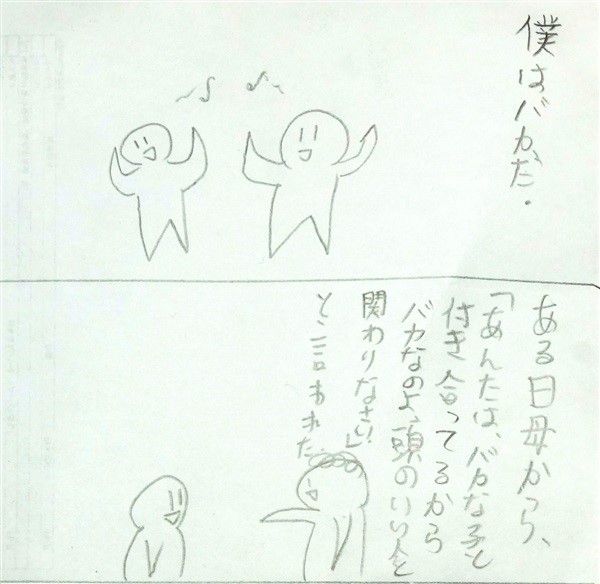 僕はバカだ.
ある日母から、
「あんたは、バカな子と
付き合ってるから
バカなのよ、頭のいい人と
関わりなさい」
と言われた